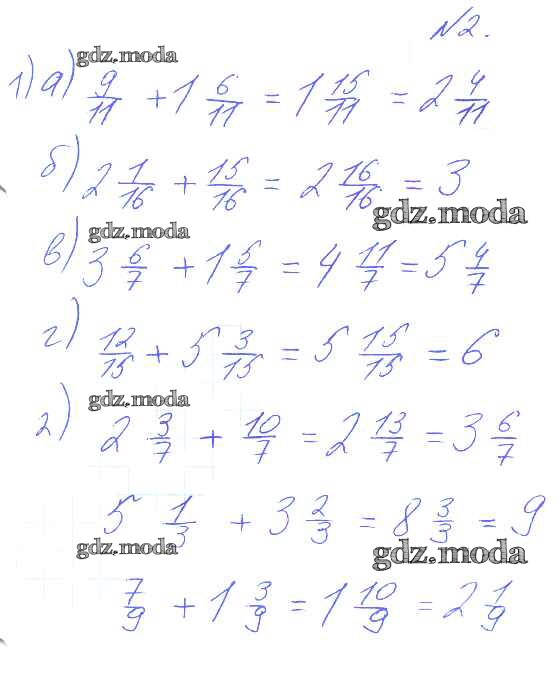 №2.
gdz.moda
1) а) 9/11 + 1 6/11 = 1 15/11 = 2 4/11
б) 2 1/16 + 15/16 = 2 16/16 = 3
gdz.moda
gdz.moda
в) 3 6/7 + 1 5/7 = 4 11/7 = 5 4/7
г) 12/15 + 5 3/15 = 5 15/15 = 6
gdz.moda
2) 2 3/7 + 10/7 = 2 13/7 = 3 6/7
5 1/3 + 3 2/3 = 8 3/3 = 9
gdz.moda
gdz.moda
7/9 + 1 3/9 = 1 10/9 = 2 1/9